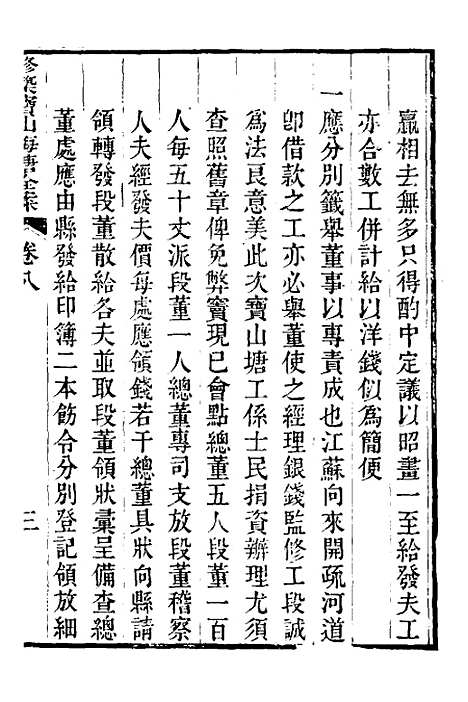 贏相去無多只得酌中定議以昭畫一至給發夫工
亦合數工併計給以洋錢似為簡便
一應分別籤舉董事以專責成也江蘇向來開疏河道
卽借款之工亦必舉董使之經理銀錢監修工段誠
為法良意美此次寶山塘工係士民捐資辦理尤須
查照舊章俾免弊竇現已會點總董五人段董一百
人每五十丈派段董一人總董專司支放段董稽察
人夫經發夫價每處應領錢若干總董具狀向縣請
領轉發段董散給各夫並取段董領狀彙呈備查總
董處應由縣發給印簿二本飭令分別登記領放細
修築寶山海塘全案 卷八 三